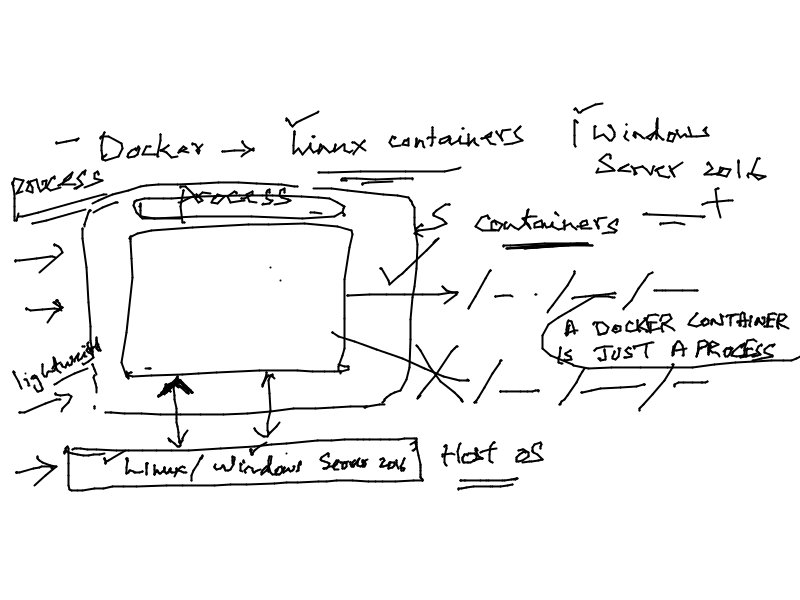 – Docker → Linux containers
Windows
Server 2016 +
Process
PROCESS
containers
A DOCKER CONTAINER
IS JUST A PROCESS
lightweight
Linux/Windows Server 2016
Host OS